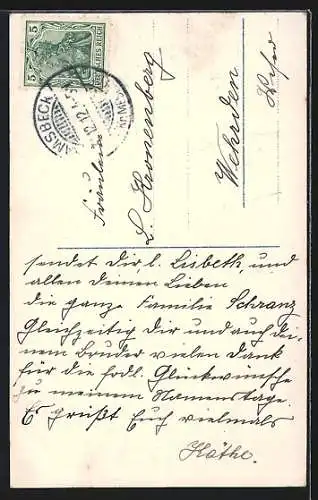 5 5
DEUTSCHES REICH
RAMSBECK
12.12.
Fräulein
L. Kronenberg
Wehrden
Weser
sendet Dir l. Lisbeth, und
allen Deinen Lieben
die ganze Familie Schranz
Gleichzeitig Dir und auch Dei-
nem Bruder vielen Dank
für die frdl. Glückwünsche
zu meinem Namenstage.
Es grüßt Euch vielmals
Käthe.